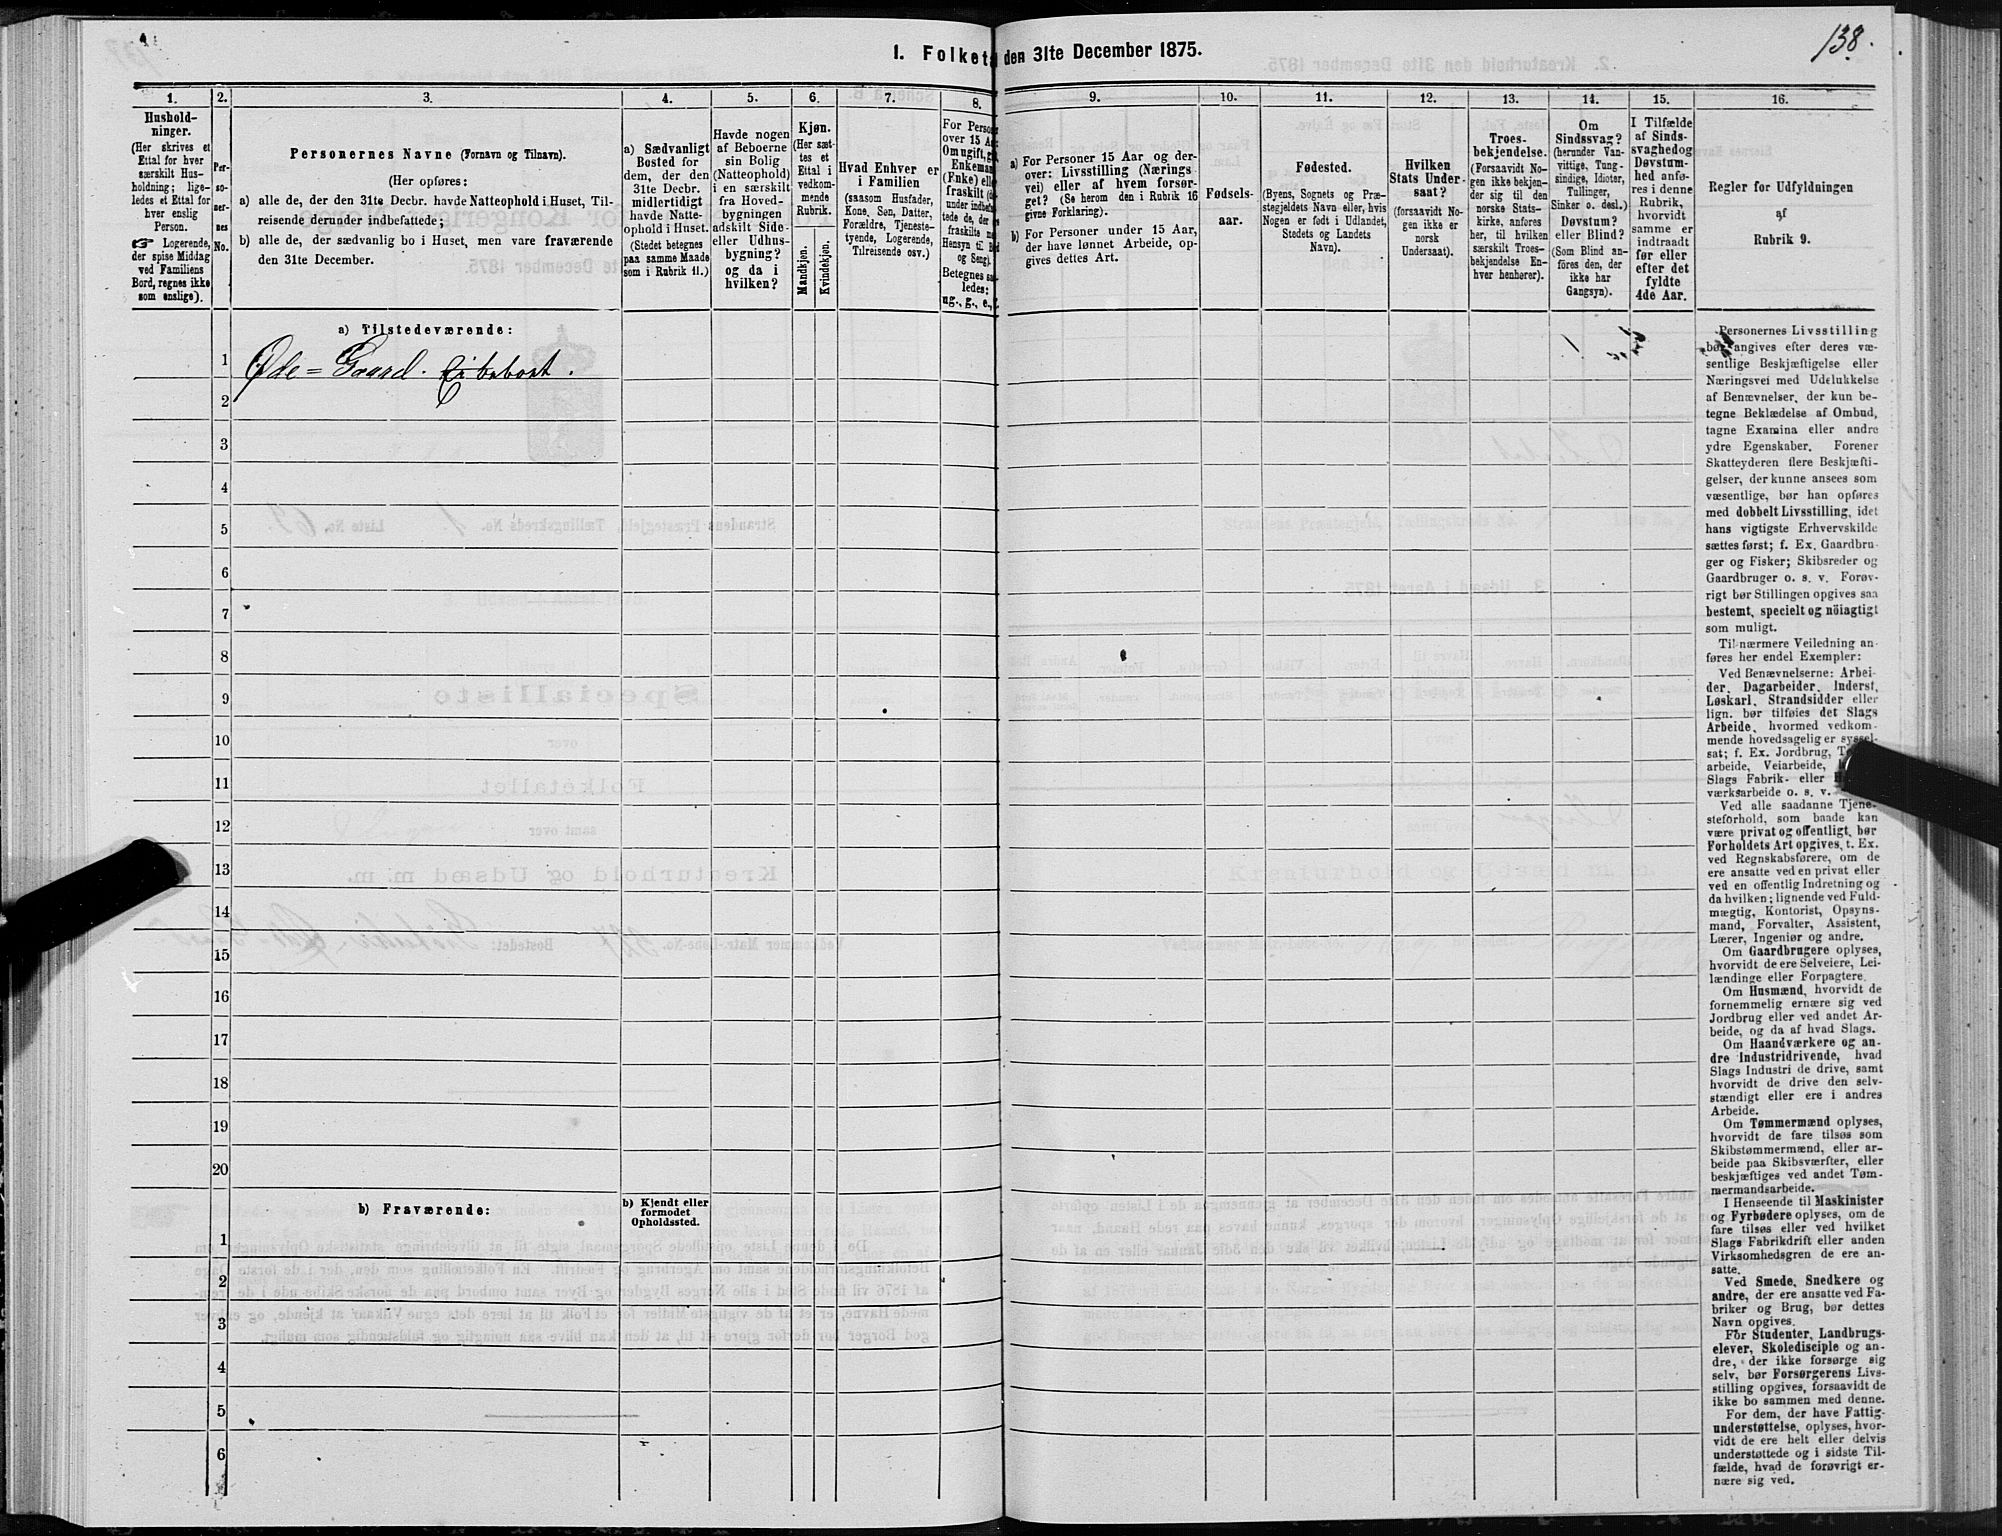 138.
I. Folketa den 31te December 1875.
1.
2.
3.
4.
5.
6.
7.
8.
9.
10.
11.
12.
13.
14.
15.
16.
Hushold-
ninger.
(Her skrives et
Ettal for hver
særskilt Hus-
holdning; lige-
ledes et Ettal for
hver enslig
Person.
☞ Logerende,
der spise Middag
ved Familiens
Bord, regnes ikke
som enslige).
Per-
so-
ner-
nes
No.
Personernes Navne (Fornavn og Tilnavn).
(Her opføres:
a) alle de, der den 31te Decbr. havde Natteophold i Huset, Til-
reisende derunder indbefattede;
b) alle de, der sædvanlig bo i Huset, men vare fraværende
den 31te December.
a) Sædvanligt
Bosted for
dem, der den
31te Decbr.
midlertidigt
havde Natte-
ophold i Huset.
(Stedet betegnes
paa samme Maade
som i Rubrik 11.)
Havde nogen
af Beboerne
sin Bolig
(Natteophold)
i en særskilt
fra Hoved-
bygningen
adskilt Side-
eller Udhus-
bygning?
og da i
hvilken?
Kjøn.
(Her sæt-
tes et
Ettal i
vedkom-
mende
Rubrik.
Mandkjøn.
Kvindekjøn.
Hvad Enhver er
i Familien
(saasom Husfader,
Kone, Søn, Datter,
Forældre, Tjeneste-
tyende, Logerende,
Tilreisende osv.)
For Person
over 15 Aa
Om ugift, g
Enkeman
(Enke) elle
fraskilt (d
under indbefat-
tede de, der
fraskilte m
Hensyn til B
og Seng).
Betegnes sa
ledes:
ug., g., e.,
a) For Personer 15 Aar og der-
over: Livsstilling (Nærings
vei) eller af hvem forsør-
get? (Se herom den i Rubrik 16
givne Forklaring).
b) For Personer under 15 Aar,
der have lønnet Arbeide, op-
gives dettes Art.
Fødsels-
aar.
Fødested.
(Byens, Sognets og Præ-
stegjeldets Navn eller, hvis
Nogen er født i Udlandet,
Stedets og Landets
Navn).
Hvilken
Stats Under-
saat?
(forsaavidt No-
gen ikke er
norsk
Undersaat).
Troes-
bekjendelse.
(Forsaavidt No-
gen ikke bekjen-
der sig til den
norske Stats-
kirke, anføres
her, til hvilken
særskilt Troes-
bekjendelse En-
hver henhører).
Om
Sindssvag?
(herunder Van-
vittige, Tung-
sindige, Idioter,
Tullinger,
Sinker o. desl.)
Døvstum?
eller Blind?
(Som Blind an-
føres den, der
ikke har
Gangsyn).
I Tilfælde
af Sinds-
svaghed og
Døvstum-
hed anfø-
res i denne
Rubrik,
hvorvidt
samme er
indtraadt
før eller
efter det
fyldte
4de Aar.
Regler for Udfyldningen
af
Rubrik 9.
a) Tilstedeværende:
1 Øde = Gaard.
2
3
4
5
6
7
8
9
10
11
12
13
14
15
16
17
18
19
20
b) Fraværende:
b) Kjendt eller
formodet
Opholdssted.
1
2
3
4
5
6
Personernes Livsstilling
bør angives efter deres væ-
sentlige Beskjæftigelse eller
Næringsvei med Udelukkelse
af Benævnelser, der kun be-
tegne Beklædelse af Ombud,
tagne Examina eller andre
ydre Egenskaber. Forener
Skatteyderen flere Beskjæfti-
gelser, der kunne ansees som
væsentlige, bør han opføres
med dobbelt Livsstilling, idet
hans vigtigste Erhvervskilde
sættes først; f. Ex. Gaardbru-
ger og Fisker; Skibsreder og
Gaardbruger o. s. v. Forøv-
rigt bør Stillingen opgives saa
bestemt, specielt og nöiagtigt
som muligt.
Til nærmere Veiledning an-
føres her endel Exempler:
Ved Benævnelserne: Arbei-
der, Dagarbeider, Inderst,
Løskarl, Strandsidder eller
lign. bør tilføies det Slags
Arbeide, hvormed vedkom-
mende hovedsagelig er syssel-
sat; f. Ex. Jordbrug,
arbeide, Veiarbeide,
Slags Fabrik- eller
værksarbeide o. s. v.
Ved alle saadanne Tjene-
steforhold, som baade kan
være privat og offentligt, bør
Forholdets Art opgives, t. Ex.
ved Regnskabsførere, om de
ere ansatte ved en privat eller
ved en offentlig Indretning og
da hvilken; lignende ved Fuld-
mægtig, Kontorist, Opsyns-
mand, Forvalter, Assistent,
Lærer, Ingeniør og andre.
Om Gaardbrugere oplyses,
hvorvidt de ere Selveiere, Lei-
lændinge eller Forpagtere.
Om Husmænd, hvorvidt de
fornemmelig ernære sig ved
Jordbrug eller ved andet Ar-
beide, og da af hvad Slags.
Om Haandværkere og an-
dre Industridrivende, hvad
Slags Industri de drive, samt
hvorvidt de drive den selv-
stændigt eller ere i andres
Arbeide.
Om Tømmermænd oplyses,
hvorvidt de fare tilsøs som
Skibstømmermænd, eller ar-
beide paa Skibsværfter, eller
beskjæftiges ved andet Tøm-
mermandsarbeide.
I Henseende til Maskinister
og Fyrbødere oplyses, om de
fare tilsøs eller ved hvilket
Slags Fabrikdrift eller anden
Virksomhedsgren de ere an-
satte.
Ved Smede, Snedkere og
andre, der ere ansatte ved Fa-
briker og Brug, bør dettes
Navn opgives.
For Studenter, Landbrugs-
elever, Skoledisciple og an-
dre, der ikke forsørge sig
selv, bør Forsørgerens Livs-
stilling opgives, forsaavidt de
ikke bo sammen med denne.
For dem, der have Fattig-
understøttelse, oplyses, hvor-
vidt de ere helt eller delvis
understøttede og i sidste Til-
fælde, hvad de forøvrigt er-
nære sig ved.